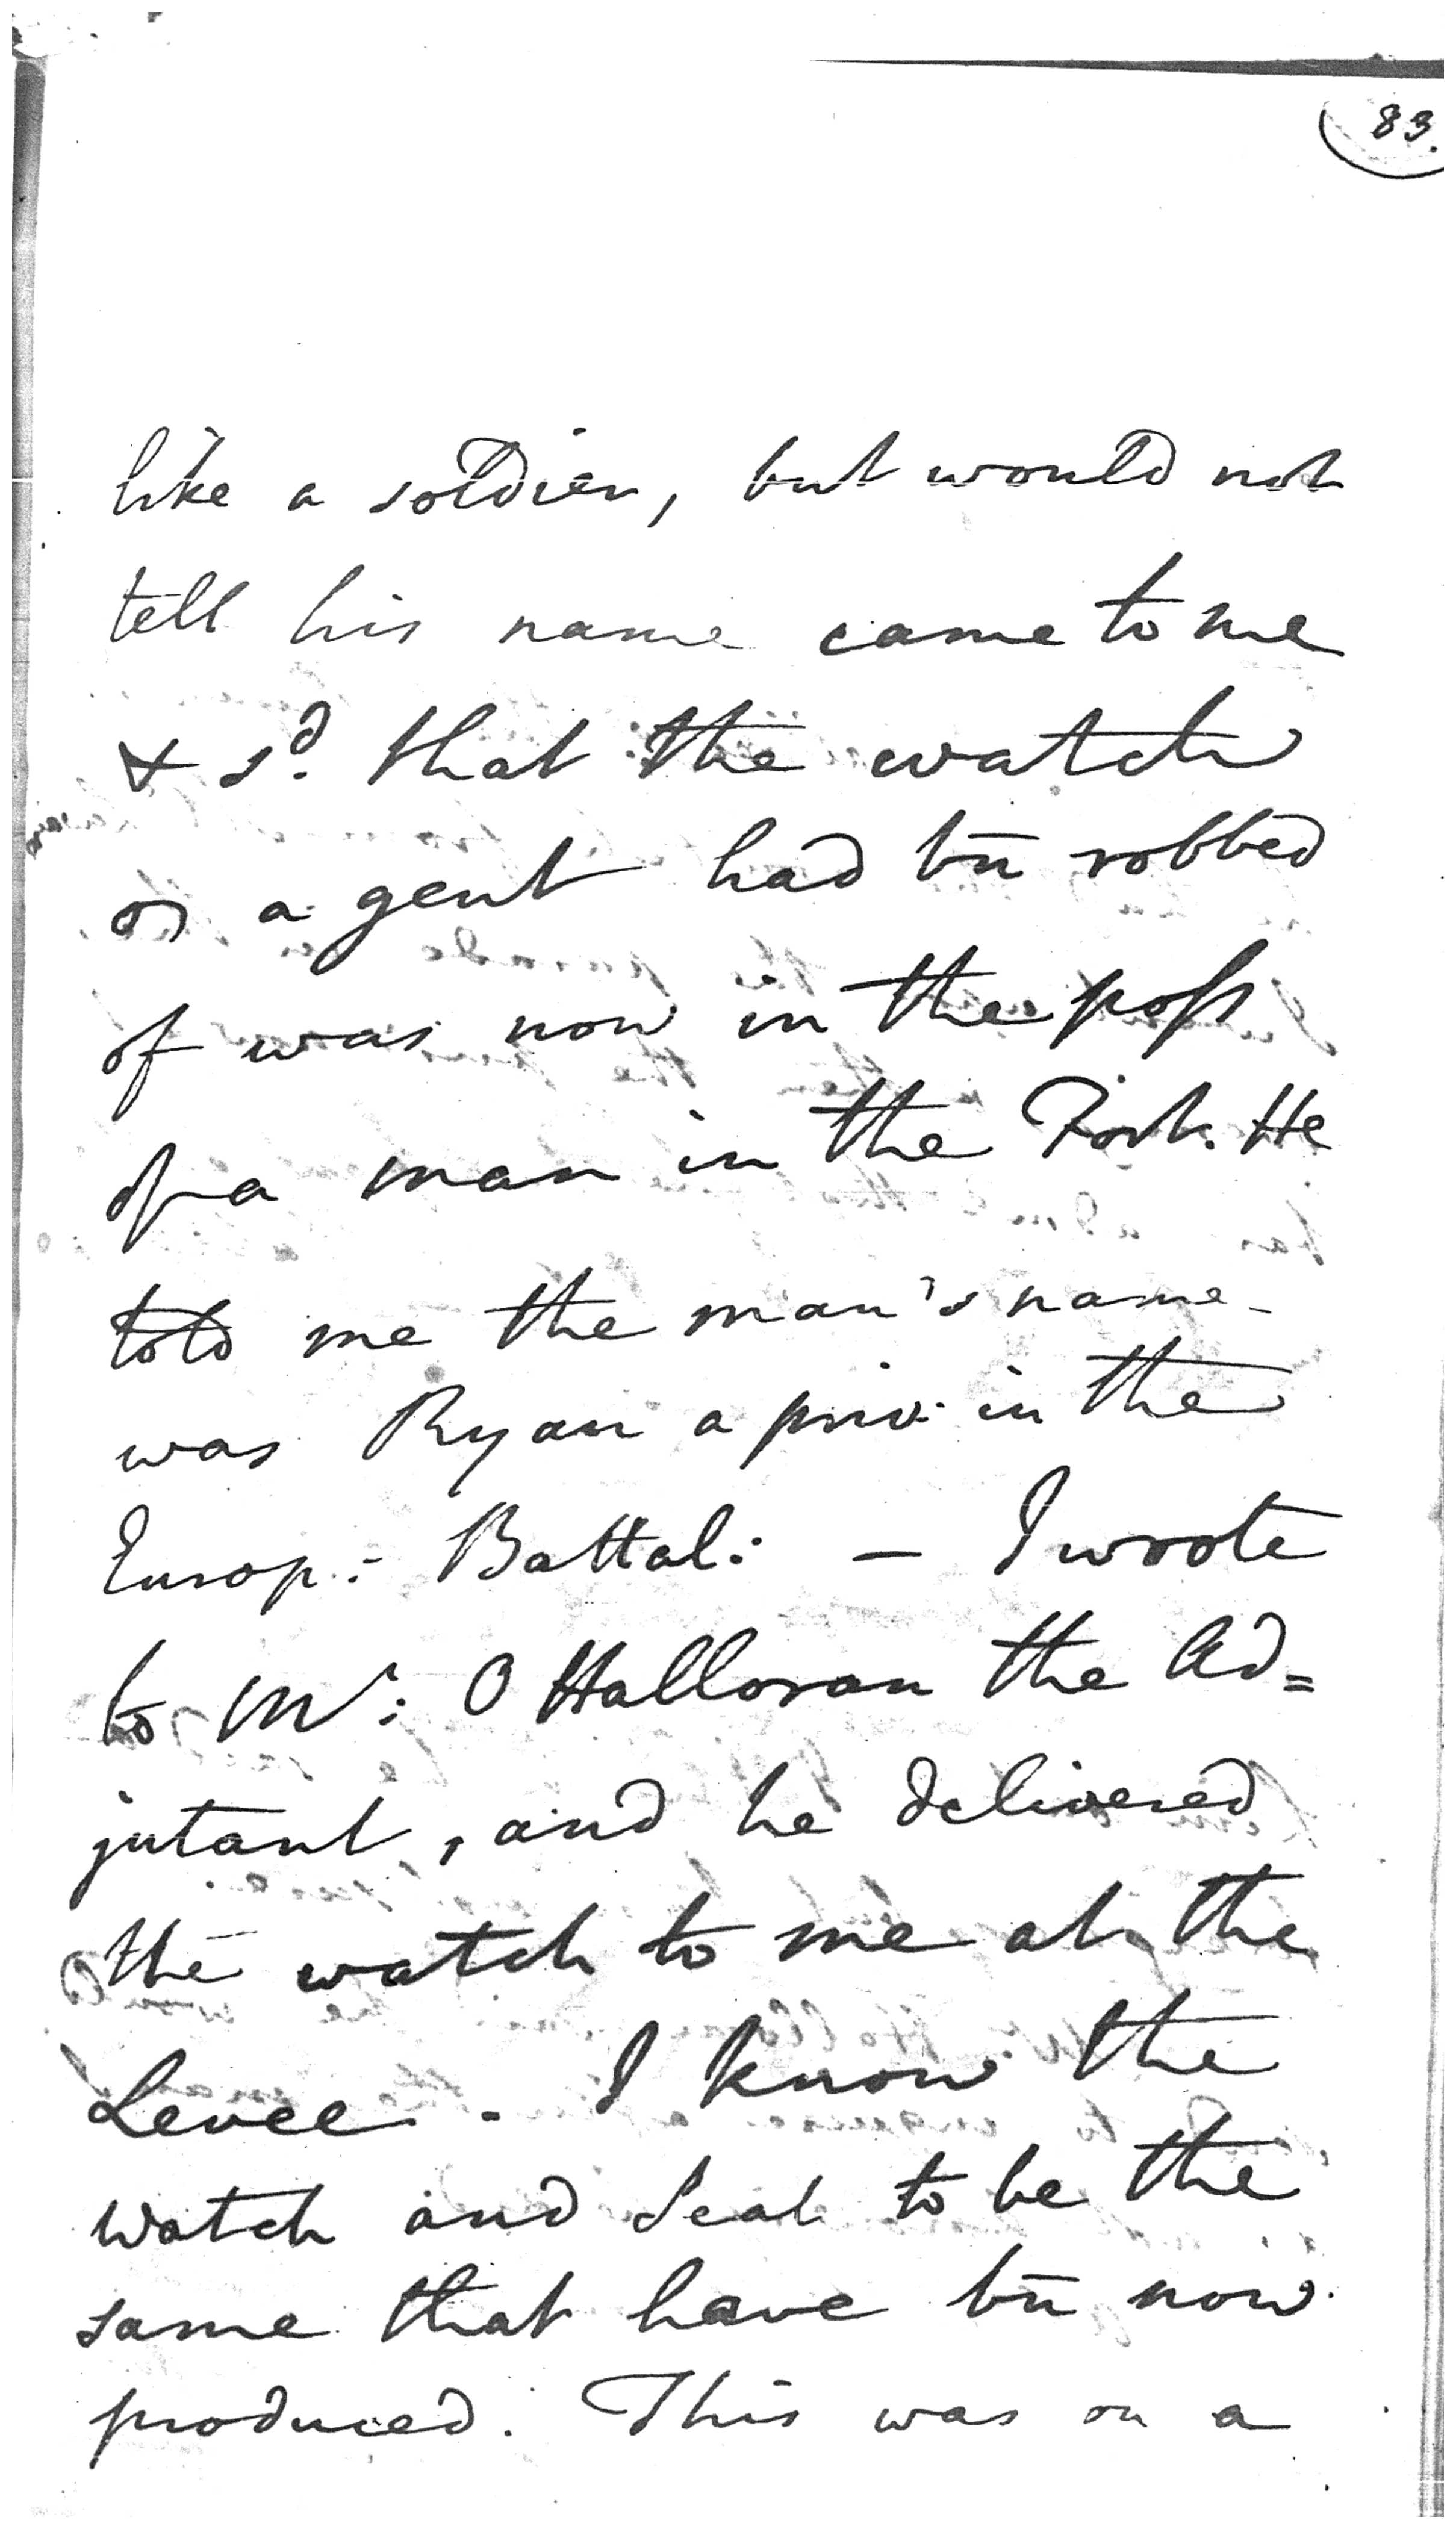 83.
like a soldier, but would not
tell his name came to me
& sd. that the watch
a gent had bn̄ robbed
of was now in the poss
of a man in the Fort. He
told me the man's name
was Ryan a priv. in the
Europ: Battal: — I wrote
to Mr: O Halloran the Ad=
jutant, and he delivered
the watch to me at the
Levee. I know the
watch and Seal to be the
same that have bn̄ now
produced. This was on a